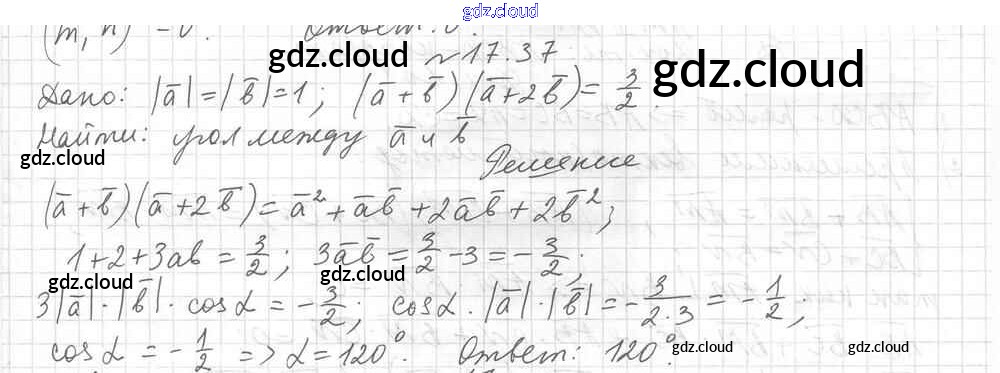 gdz.cloud
(m, n) = 0. Ответ: 0.
№17.37
gdz.cloud
gdz.cloud
Дано: |a̅| = |b̅| = 1; (a̅ + b̅)(a̅ + 2b̅) = 3/2.
Найти: угол между a̅ и b̅
gdz.cloud
Решение
(a̅ + b̅)(a̅ + 2b̅) = a̅² + a̅b̅ + 2a̅b̅ + 2b̅²;
1 + 2 + 3ab = 3/2; 3a̅b̅ = 3/2 - 3 = -3/2;
gdz.cloud
gdz.cloud
3|a̅|·|b̅|· cosα = -3/2; cosα·|a̅|·|b̅| = -3/(2·3) = -1/2;
cosα = -1/2 => α = 120°. Ответ: 120°.
gdz.cloud
gdz.cloud